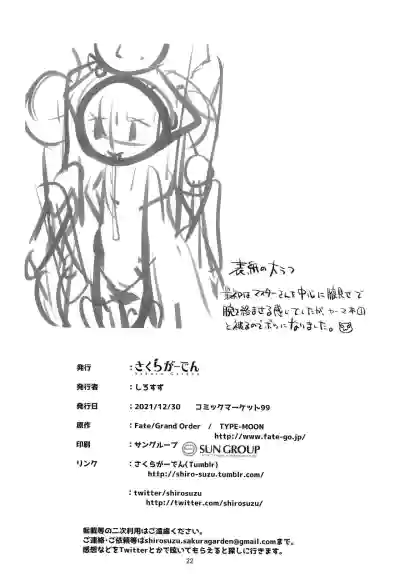 表紙の大ラフ
最初はマスターさんを中心に腹見せで
腕を絡ませる感じでしたが、カーマ本①
と被るのでボツになりました。
発行 ：さくらがーでん
Sakura Garden
発行者 ：しろすず
発行日 ：2021/12/30 コミックマーケット99
原作 ：Fate/Grand Order / TYPE-MOON
http://www.fate-go.jp/
印刷 ：サングループ SUN GROUP
リンク ：さくらがーでん(Tumblr)
http://shiro-suzu.tumblr.com/
：twitter/shirosuzu
http://twitter.com/shirosuzu/
転載等の二次利用はご遠慮ください。
ご連絡・ご依頼等はshirosuzu.sakuragarden@gmail.comまで。
感想などをTwitterとかで呟いてもらえると探しに行きます。
22